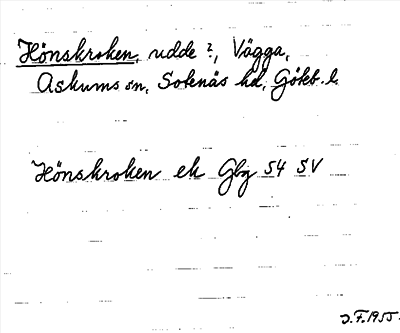 Hönskroken, udde?, Vägga,
Askums sn, Sotenäs hd, Gökb. l.
Hönskroken ek Gbg 54 SV
J.F. 1955.